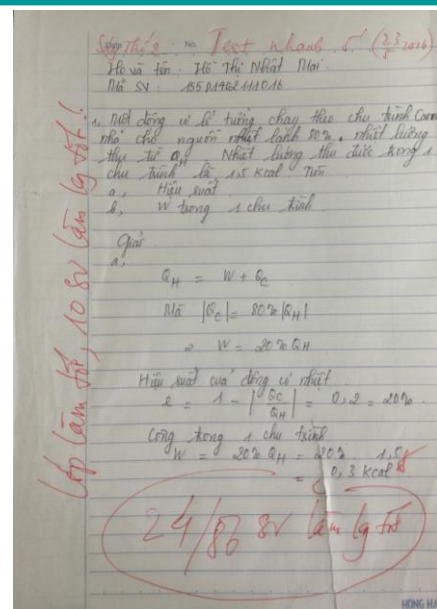 Sáng Thứ 2 No. Test nhanh 5' (
Họ và tên: Hồ Thị Nhật Mai
Mã SV:
1, Một động cơ lí tưởng chạy theo chu trình Carn
nhả cho nguồn nhiệt lạnh 80% nhiệt lượng
thu từ Q_H Nhiệt lượng thu được trong 1
chu trình là 1,5 Kcal. Tìm
a, Hiệu suất
b, W trong 1 chu trình
Giải
a,
Q_H = W + Q_C
Mà |Q_C| = 80% |Q_H|
W = 20% Q_H
Hiệu suất của động cơ nhiệt
e = 1 - |Q_C/Q_H| = 0,2 = 20%
Công trong 1 chu trình
W = 20% Q_H = 20% 1,5
= 0,3 Kcal
24/86 sv làm bg tốt
Lớp làm tốt, 10 sv làm bg tốt!
HONG HA